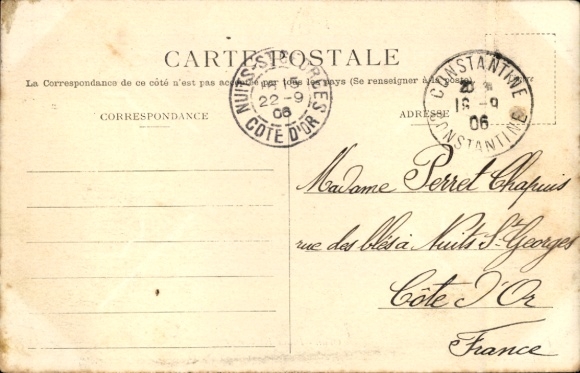 CARTE POSTALE
La Correspondance de ce côté n'est pas acceptée par tous les pays (Se renseigner à la poste)
CORRESPONDANCE
ADRESSE
NUITS-ST-GEORGES
22 -9
06
COTE D'OR
CONSTANTINE
18 -9
06
CONSTANTINE
Madame Perret Chapuis
rue des blés à Nuits St Georges
Côte d'Or
France